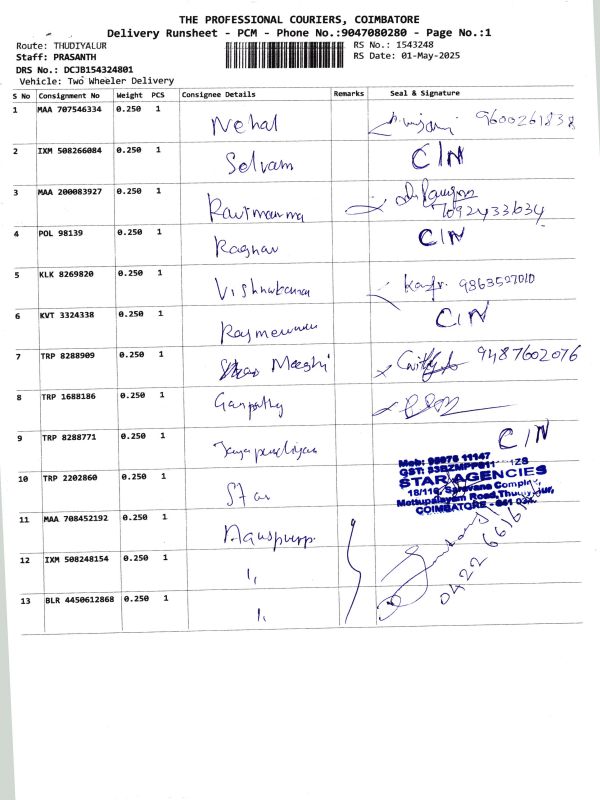 THE PROFESSIONAL COURIERS, COIMBATORE
Delivery Runsheet - PCM - Phone No.:9047080280 - Page No.:1
Route: THUDIYALUR RS No.: 1543248
Staff: PRASANTH RS Date: 01-May-2025
DRS No.: DCJB154324801
Vehicle: Two Wheeler Delivery
S No Consignment No Weight PCS Consignee Details Remarks Seal & Signature
1 MAA 707546334 0.250 1 Nehal 9600261838
2 IXM 508266084 0.250 1 Selvam C/N
3 MAA 200083927 0.250 1
4 POL 98139 0.250 1 Raghav C/N
5 KLK 8269820 0.250 1 9363527010
6 KVT 3324338 0.250 1 C/N
7 TRP 8288909 0.250 1 9487602076
8 TRP 1688186 0.250 1 Ganpathy
9 TRP 8288771 0.250 1 C/N
10 TRP 2202860 0.250 1 Star
STAR AGENCIES
Mettupalayam Road,
COIMBATORE
11 MAA 708452192 0.250 1
12 IXM 508248154 0.250 1 "
13 BLR 4450612868 0.250 1 "
0422